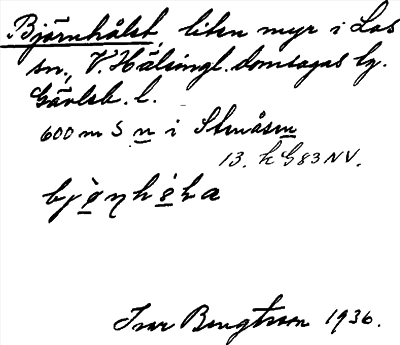 Björnhålet, liten myr i Los
sn., V. Hälsingl. domsagas tg.
Gävleb. l.
600 m S n i Stenåsen
13. k G 83 NV.
bjö̀ṇhǻḷa
Ivar Bengtsson 1936.